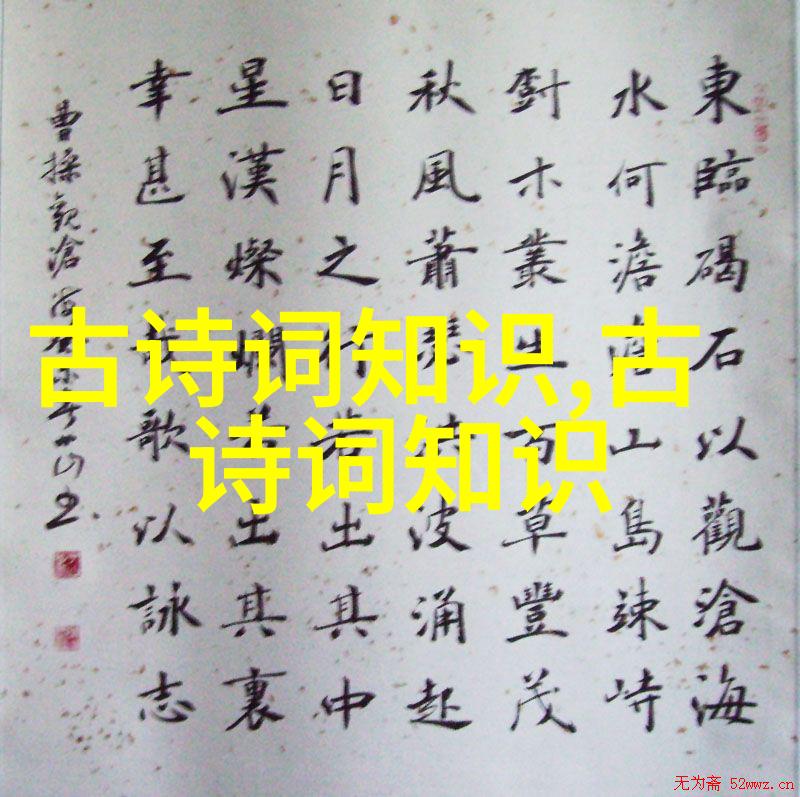 東臨碣石以觀滄海
水何澹澹山島竦峙
尌木叢生百草豐茂
秋風蕭瑟洪波涌起
日月之行若出其中
星漢燦爛若出其裏
幸甚至哉歌以詠志
曹操觀滄海
古诗词知识,古
诗词知识
无为斋 52wwz.cn